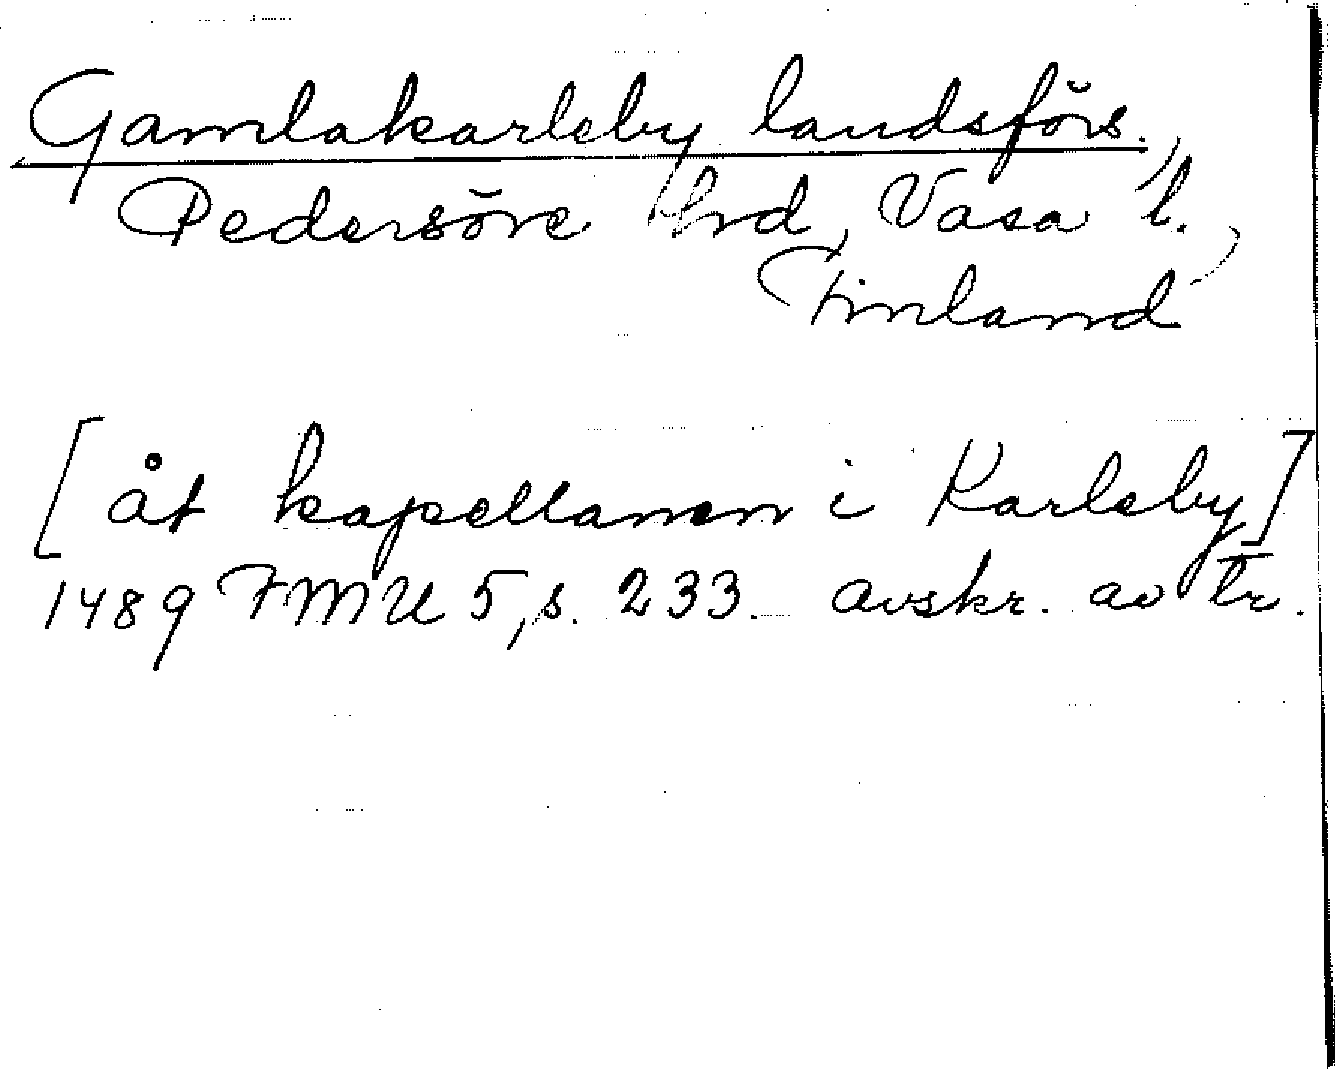 Gamlakarleby landsförs.,
Pedersöre hrd, Vasa l.,
Finland
[åt kapellanen i Karleby]
1489 FMU 5, s. 233. avskr. av tr.